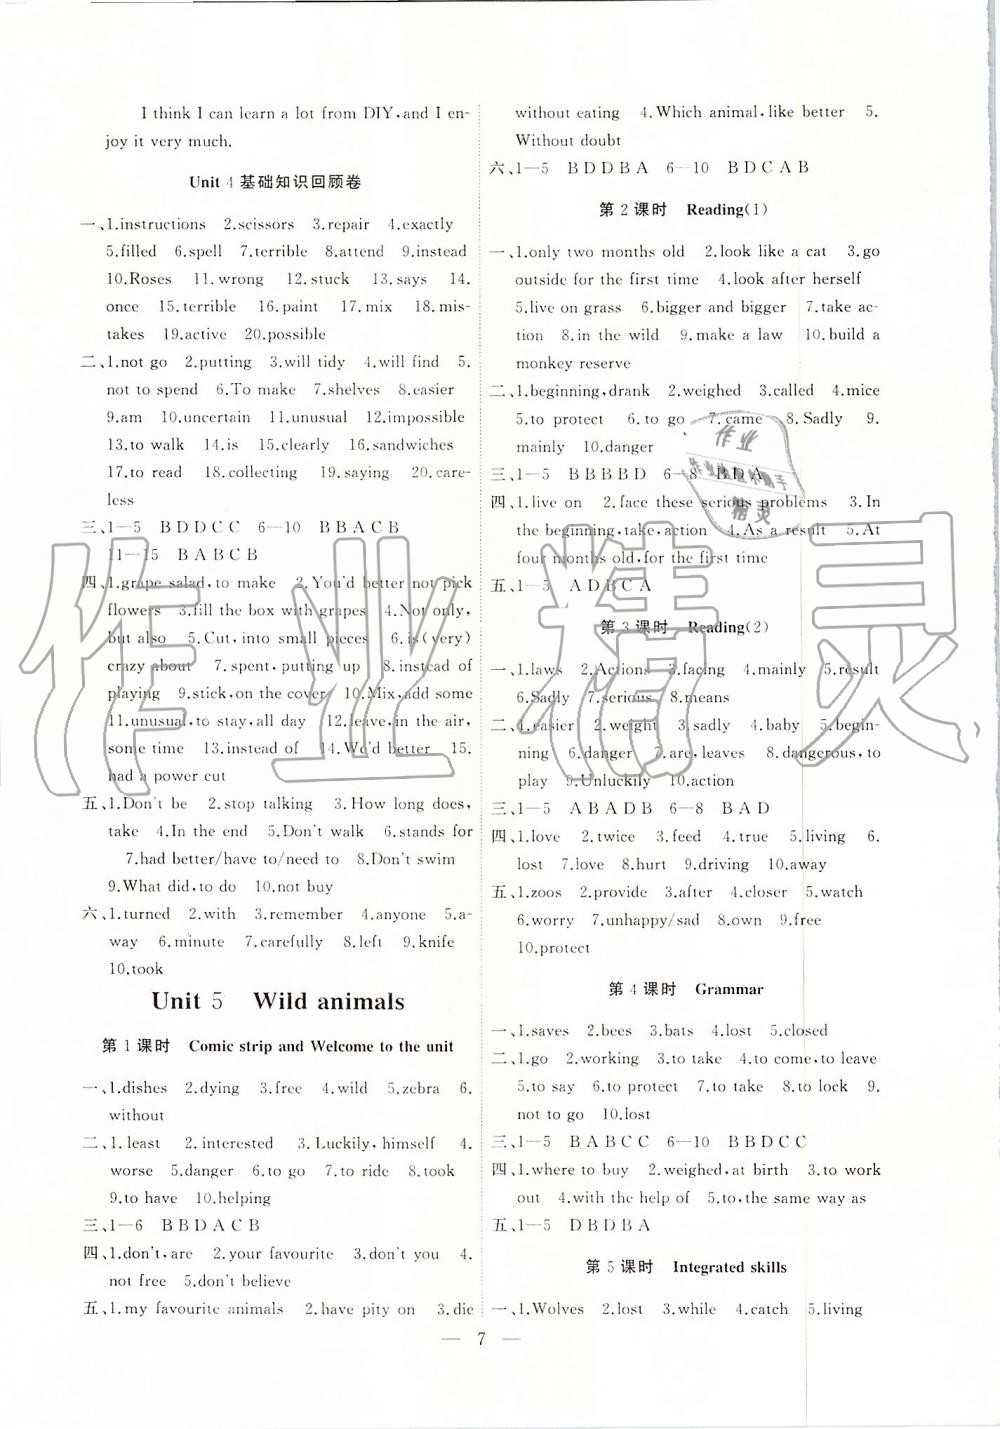 I think I can learn a lot from DIY,and I en-
joy it very much.
Unit 4基础知识回顾卷
一、1.instructions 2.scissors 3.repair 4.exactly
5.filled 6.spell 7.terrible 8.attend 9.instead
10.Roses 11.wrong 12.stuck 13.says 14.
once 15.terrible 16.paint 17.mix 18.mis-
takes 19.active 20.possible
二、1.not go 2.putting 3.will tidy 4.will find 5.
not to spend 6.To make 7.shelves 8.easier
9.am 10.uncertain 11.unusual 12.impossible
13.to walk 14.is 15.clearly 16.sandwiches
17.to read 18.collecting 19.saying 20.care-
less
三、1—5 BDDCC 6—10 BBACB
11—15 BABCB
四、1.grape salad,to make 2.You'd better not pick
flowers 3.fill the box with grapes 4.Not only,
but also 5.Cut,into small pieces 6.is(very)
crazy about 7.spent,putting up 8.instead of
playing 9.stick,on the cover 10.Mix,add some
11.unusual,to stay,all day 12.leave,in the air,
some time 13.instead of 14.We'd better 15.
had a power cut
五、1.Don't be 2.stop talking 3.How long does,
take 4.In the end 5.Don't walk 6.stands for
7.had better/have to/need to 8.Don't swim
9.What did,to do 10.not buy
六、1.turned 2.with 3.remember 4.anyone 5.a-
way 6.minute 7.carefully 8.left 9.knife
10.took
Unit 5 Wild animals
第1课时 Comic strip and Welcome to the unit
一、1.dishes 2.dying 3.free 4.wild 5.zebra 6.
without
二、1.least 2.interested 3.Luckily,himself 4.
worse 5.danger 6.to go 7.to ride 8.took
9.to have 10.helping
三、1—6 BBDACB
四、1.don't,are 2.your favourite 3.don't you 4.
not free 5.don't believe
五、1.my favourite animals 2.have pity on 3.die
without eating 4.Which animal,like better 5.
Without doubt
六、1—5 BDDBA 6—10 BDCAB
第2课时 Reading(1)
一、1.only two months old 2.look like a cat 3.go
outside for the first time 4.look after herself
5.live on grass 6.bigger and bigger 7.take ac-
tion 8.in the wild 9.make a law 10.build a
monkey reserve
二、1.beginning,drank 2.weighed 3.called 4.mice
5.to protect 6.to go 7.came 8.Sadly 9.
mainly 10.danger
三、1—5 BBBBD 6—8 BDA
四、1.live on 2.face these serious problems 3.In
the beginning,take,action 4.As a result 5.At
four months old,for the first time
五、1—5 ADBCA
第3课时 Reading(2)
一、1.laws 2.Actions 3.facing 4.mainly 5.result
6.Sadly 7.serious 8.means
二、1.easier 2.weight 3.sadly 4.baby 5.begin-
ning 6.danger 7.are,leaves 8.dangerous,to
play 9.Unluckily 10.action
三、1—5 ABADB 6—8 BAD
四、1.love 2.twice 3.feed 4.true 5.living 6.
lost 7.love 8.hurt 9.driving 10.away
五、1.zoos 2.provide 3.after 4.closer 5.watch
6.worry 7.unhappy/sad 8.own 9.free
10.protect
第4课时 Grammar
一、1.saves 2.bees 3.bats 4.lost 5.closed
二、1.go 2.working 3.to take 4.to come,to leave
5.to say 6.to protect 7.to take 8.to lock 9.
not to go 10.lost
三、1—5 BABCC 6—10 BBDCC
四、1.where to buy 2.weighed,at birth 3.to work
out 4.with the help of 5.to,the same way as
五、1—5 DBDBA
第5课时 Integrated skills
一、1.Wolves 2.lost 3.while 4.catch 5.living
— 7 —
作业精灵
作业
精灵